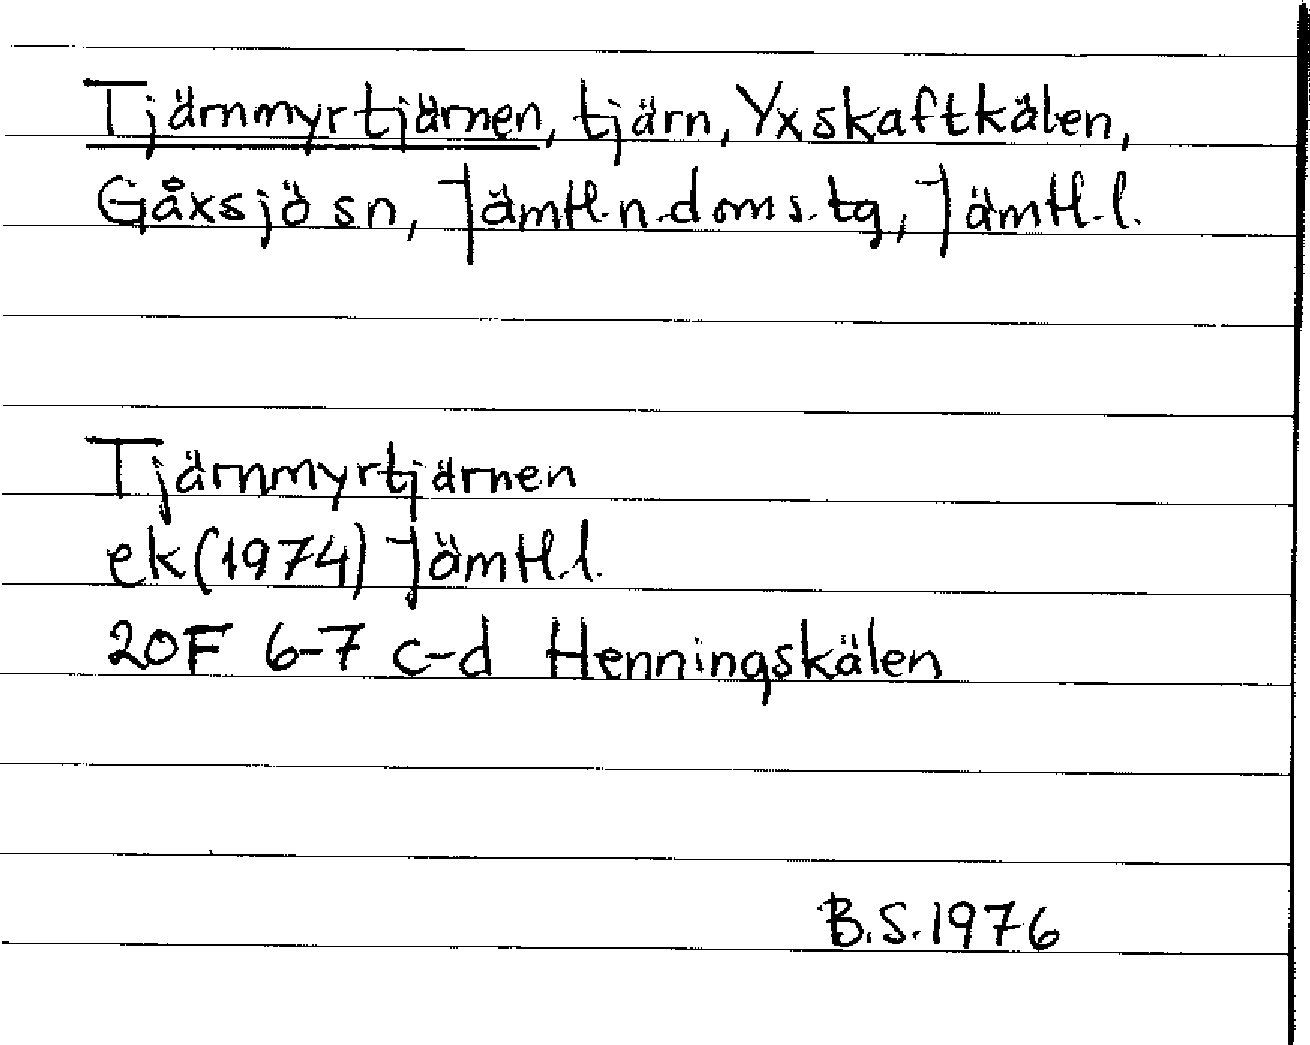 Tjärnmyrtjärnen, tjärn, Yxskaftkälen,
Gåxsjö sn, Jämtl.n.doms.tg, Jämtl.l.
Tjärnmyrtjärnen
ek(1974) Jämtl.l.
20F 6-7 c-d Henningskälen
B.S.1976